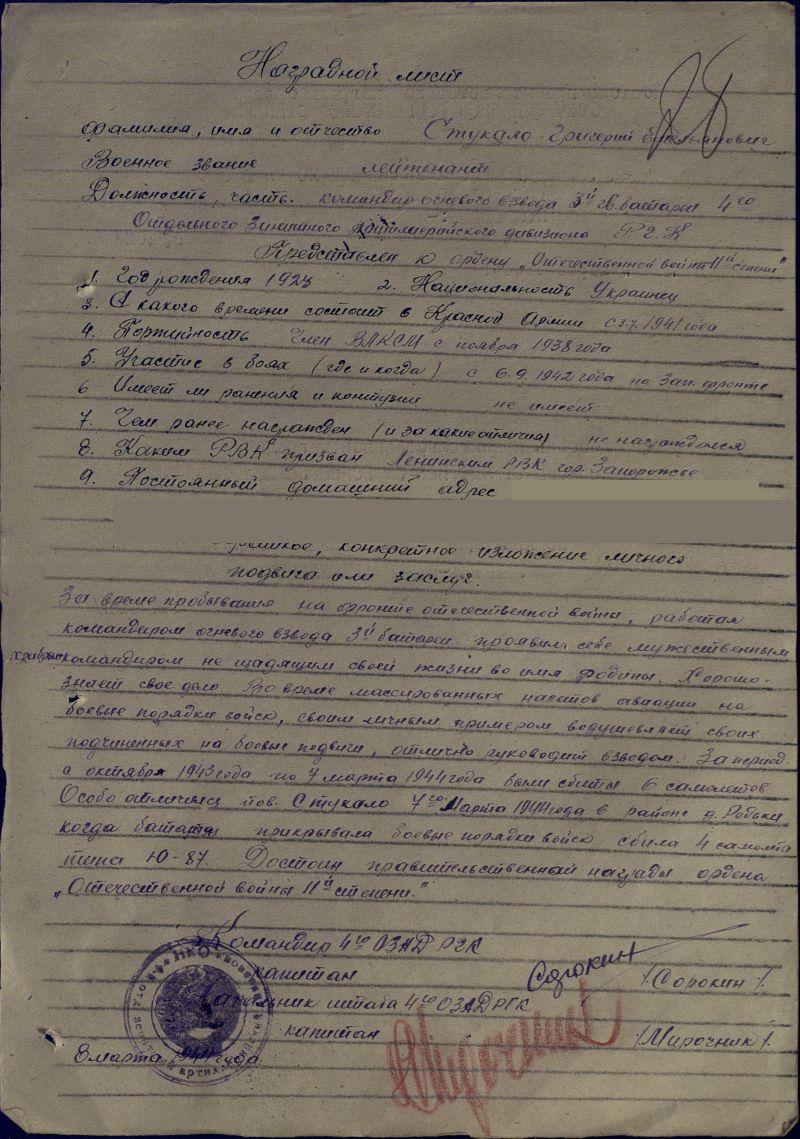 Наградной лист
фамилия, имя и отчество Стукало Григорий
Военное звание лейтенант
Должность, часть. командир огневого взвода 3й гв. батареи 4го
Отдельного Зенитного артиллерийского дивизиона РГК
Представлен к ордену „Отечественной войны IIй степени"
1. Год рождения 1923 2. Национальность Украинец
3. С какого времени состоит в Красной Армии с 3.7.1941 года
4. Партийность Член ВЛКСМ с ноября 1938 года
5. Участие в боях (где и когда) с 6.9.1942 года на Зап. фронте
6 Имеет ли ранения и контузии не имеет
7. Чем ранее награжден (и за какие отличия) не награждался
8. Каким РВК призван Ленинским РВК гор. Запорожье
9. Постоянный домашний адрес
конкретное изложение личного
подвига или заслуг.
За време пребывания на фронте отечественной война, работая
командиром огневого взвода 3й батареи проявил себе мужественным
командиром не щадящим своей жизни во имя Родины. Хорошо-
знает свое дело. Во време массированных налетов авиации на
боевые порядки войск, своим личным примером водушевляет своих
подчиненных на боевые подвиги, отлично руководит взводом. За период
с октября 1943 года по 7 марта 1944 года были сбиты 6 самолетов
Особо отличился тов. Стукало 7го Марта 1944 года в районе д. Редьки
когда батарея прикрывала боевые порядки войск сбила 4 самолта
типа Ю-87. Достоин правительственной награды ордена
„Отечественной войны IIй степени."
Командир 4го ОЗАД РГК
капитан Сорокин /Сорокин/.
Начальник штаба 4го ОЗАД РГК
капитан Мирочник /Мирочник/.
8 марта 1944 года
НКО